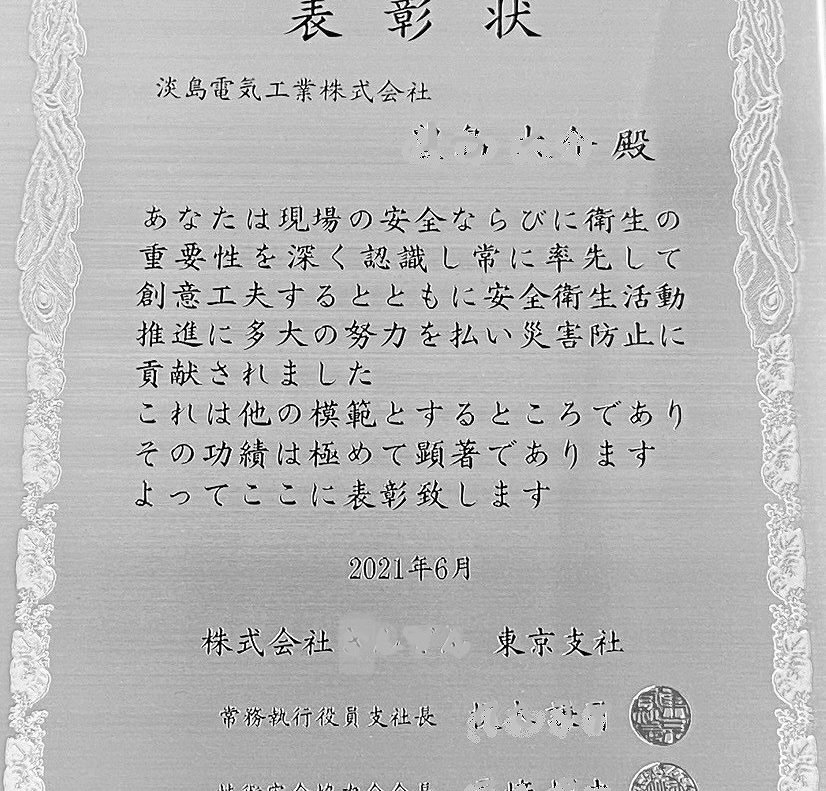 表彰状
淡島電気工業株式会社
殿
あなたは現場の安全ならびに衛生の
重要性を深く認識し常に率先して
創意工夫するとともに安全衛生活動
推進に多大の努力を払い災害防止に
貢献されました
これは他の模範とするところであり
その功績は極めて顕著であります
よってここに表彰致します
2021年6月
株式会社 東京支社
常務執行役員支社長